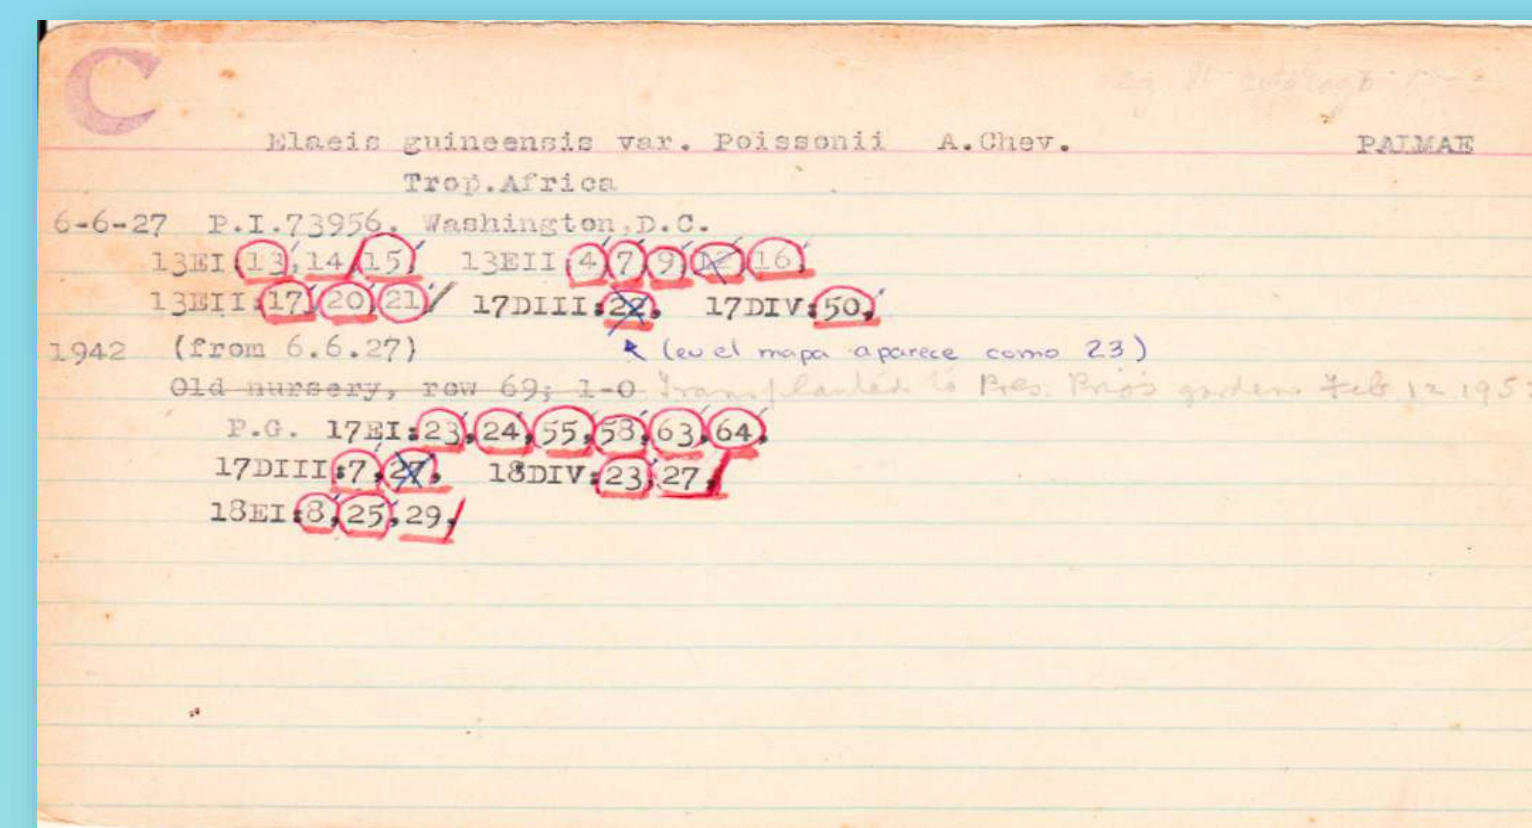 C
Elaeis guineensis var. Poissonii A.Chev. PALMAE
Trop.Africa
6-6-27 P.I.73956. Washington,D.C.
13EI:13,14/15, 13EII:4,7,9,12,16,
13EII:17,20,21/ 17DIII:22, 17DIV:50,
1942 (from 6.6.27) (en el mapa aparece como 23)
Old nursery, row 69; 1-0 Transplanted to Pres. Prio's garden Feb 12 195
P.G. 17EI:23,24,55,58,63,64,
17DIII:7,27, 18DIV:23,27,
18EI:8,25,29,